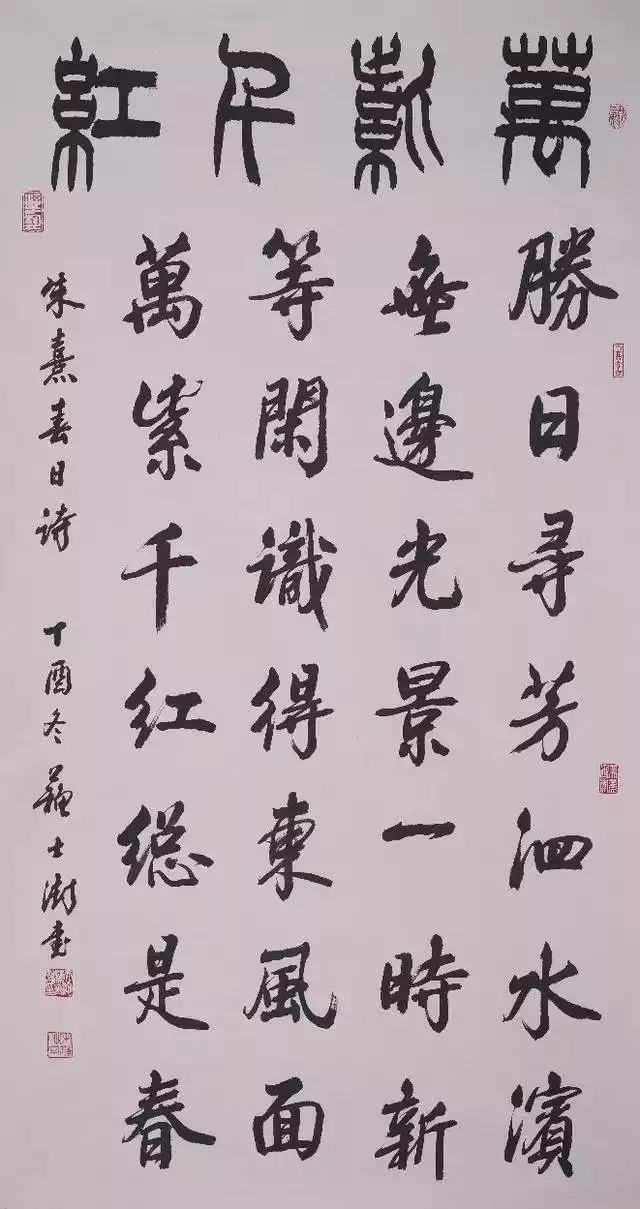 萬紫千紅
勝日尋芳泗水濱
無邊光景一時新
等閑識得東風面
萬紫千紅總是春
朱熹春日詩 丁酉冬蘇士澍書